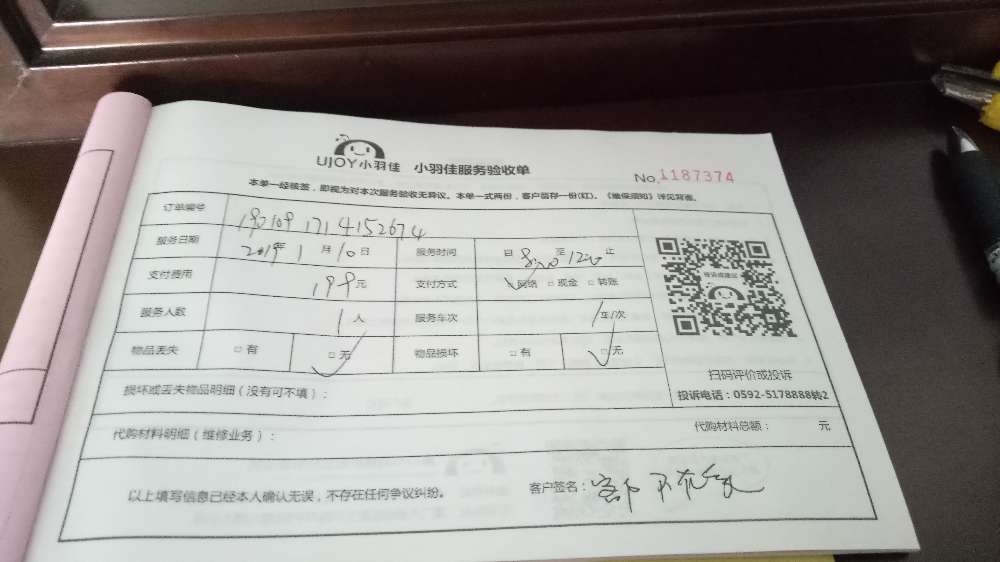 UJOY小羽佳 小羽佳服务验收单
No.1187374
本单一经核签，即视为对本次服务验收无异议。本单一式两份，客户留存一份(红)。《维保须知》详见背面。
订单编号 1901091714152674
服务日期 2019年1月10日 服务时间 自8:00至12:00止
支付费用 199元 支付方式 ✓网络 □现金 □转账
服务人数 1人 服务车次 1车/次
物品丢失 □有 □无 物品损坏 □有 □无
投诉或建议
扫码评价或投诉
投诉电话：0592-5178888转2
损坏或丢失物品明细（没有可不填）：
代购材料明细（维修业务）： 代购材料总额： 元
以上填写信息已经本人确认无误，不存在任何争议纠纷。 客户签名：客户不在家